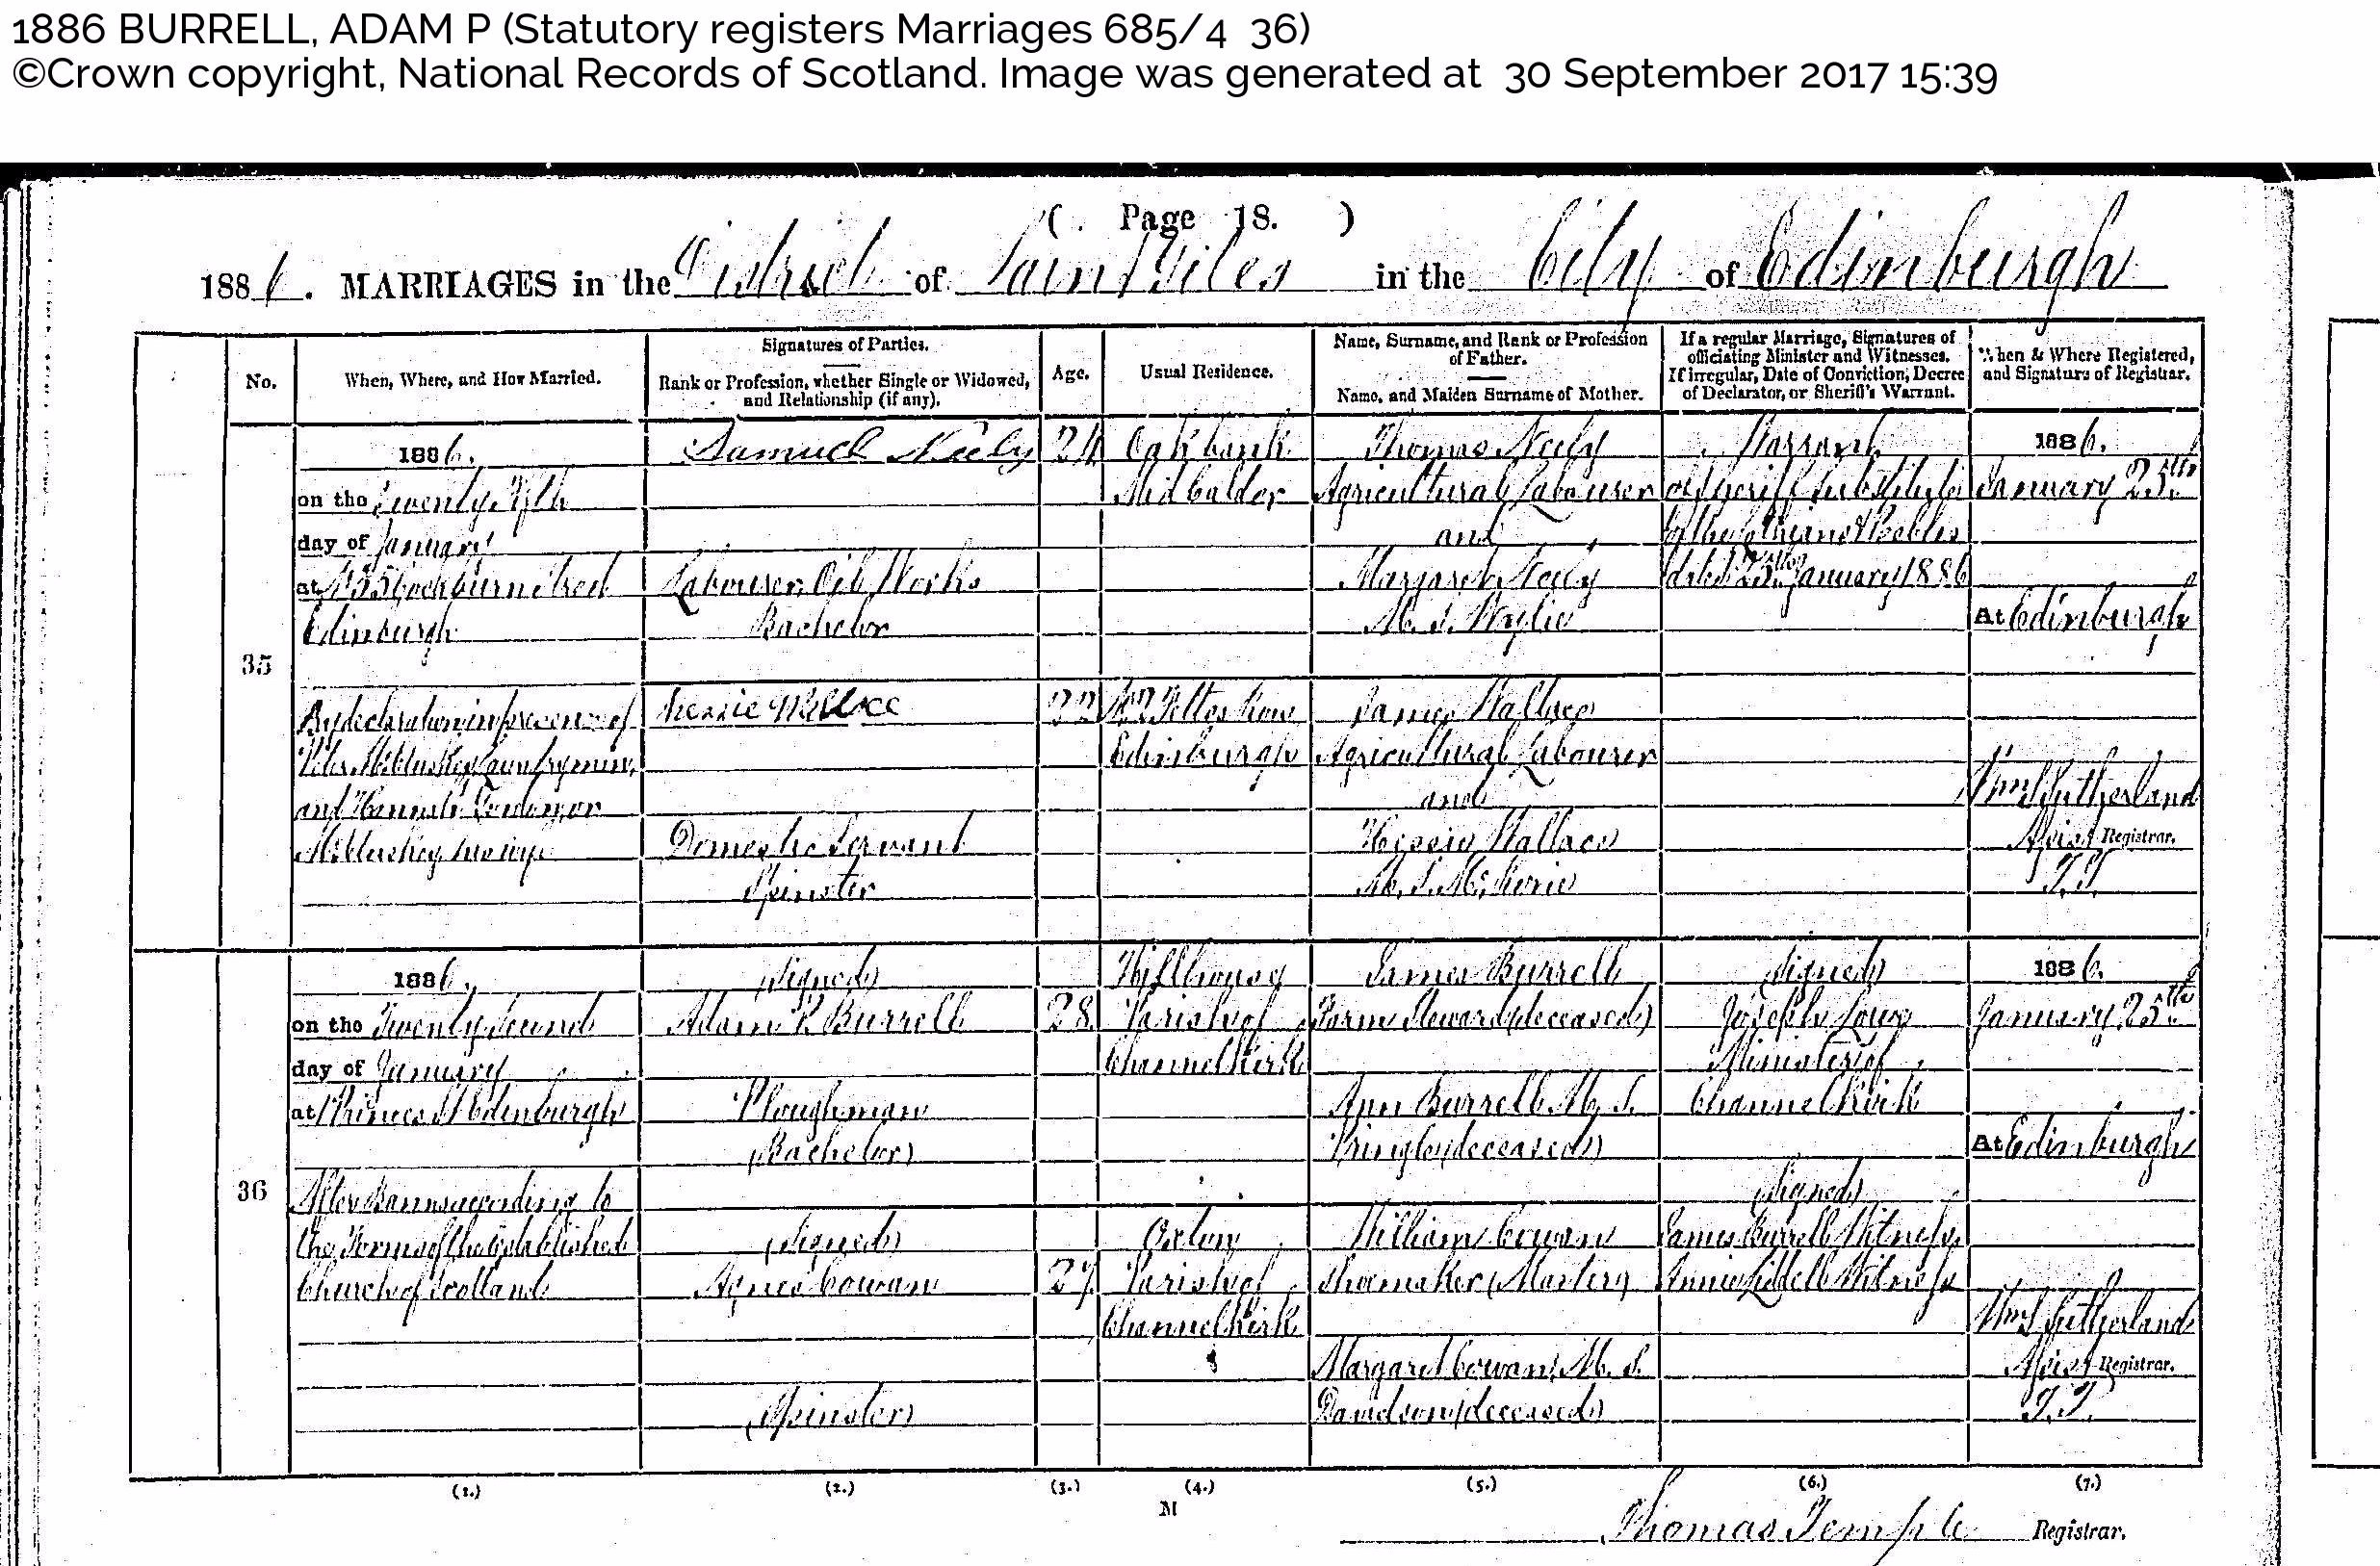 1886 BURRELL, ADAM P (Statutory registers Marriages 685/4 36)
©Crown copyright, National Records of Scotland. Image was generated at 30 September 2017 15:39
( Page 18. )
1886. MARRIAGES in the District of Saint Giles in the City of Edinburgh
No.
When, Where, and How Married.
Signatures of Parties.
Rank or Profession, whether Single or Widowed,
and Relationship (if any).
Age.
Usual Residence.
Name, Surname, and Rank or Profession
of Father.
Name, and Maiden Surname of Mother.
If a regular Marriage, Signatures of
officiating Minister and Witnesses.
If irregular, Date of Conviction, Decree
of Declarator, or Sheriff's Warrant.
When & Where Registered,
and Signature of Registrar.
35
1886.
on the Twenty Fifth
day of January
at No 5 Cockburn Street
Edinburgh
By declaration in presence of
Peter McCluskey
and Hannah or
McCluskey his wife
Samuel Neely
Labourer, Oil Works
Bachelor
Wallace
Domestic Servant
Spinster
24
22
Oakbank
Mid Calder
Fettes Row
Edinburgh
Thomas Neely
Agricultural Labourer
and
Margaret Neely
M. S. Wylie
James Wallace
Agricultural Labourer
and
Wallace
M. S.
Warrant
of Sheriff Substitute
of the Lothians & Peebles
dated 25th January 1886
1886.
January 25th
At Edinburgh
Wm Sutherland
Assist Registrar.
T.T.
36
1886.
on the Twenty Second
day of January
at Princes St Edinburgh
After Banns according to
the Forms of the Established
Church of Scotland
(signed)
Adam P. Burrell
Ploughman
(Bachelor)
(signed)
Agnes Cowan
(Spinster)
28
27
Hillhouse
Parish of
Channelkirk
Oxton
Parish of
Channelkirk
James Burrell
Farm Steward (deceased)
Ann Burrell M. S.
Pringle (deceased)
William Cowan
Shoemaker (Master)
Margaret Cowan, M. S.
Davidson (deceased)
(signed)
Joseph Lowe
Minister of
Channelkirk
(signed)
James Burrell Witness
Annie Liddell Witness
1886.
January 25th
At Edinburgh
Wm Sutherland
Assist Registrar.
T.T.
(1.) (2.) (3.) (4.) (5.) (6.) (7.)
M
Thomas Temple Registrar.